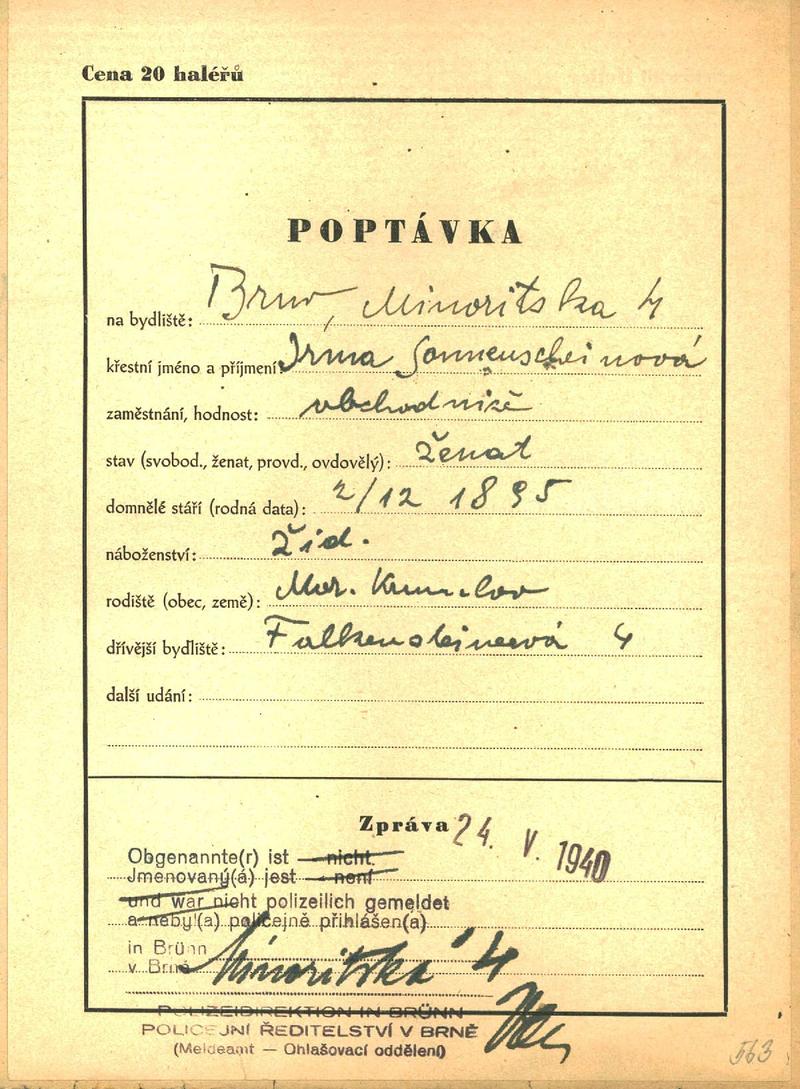 Cena 20 haléřů
POPTÁVKA
na bydliště: Brno, Minoritska 4
křestní jméno a příjmení: Irma Sonnenscheinová
zaměstnání, hodnost: obchodnize
stav (svobod., ženat, provd., ovdovělý): ženat
domnělé stáří (rodná data): 2/12 1895
náboženství: Žid.
rodiště (obec, země): Mor. Krumlov
dřívější bydliště: Falkensteinerová 4
další udání:
Zpráva 24. V. 1940
Obgenannte(r) ist nicht
Jmenovaný(á) jest není
und war nicht polizeilich gemeldet
a neby!(a) policejně přihlášen(a)
in Brünn
v Brně Minoritská 4
POLIZEIDIREKTION IN BRÜNN
POLICEJNÍ ŘEDITELSTVÍ V BRNĚ
(Meldeamt — Ohlašovací oddělení)
563